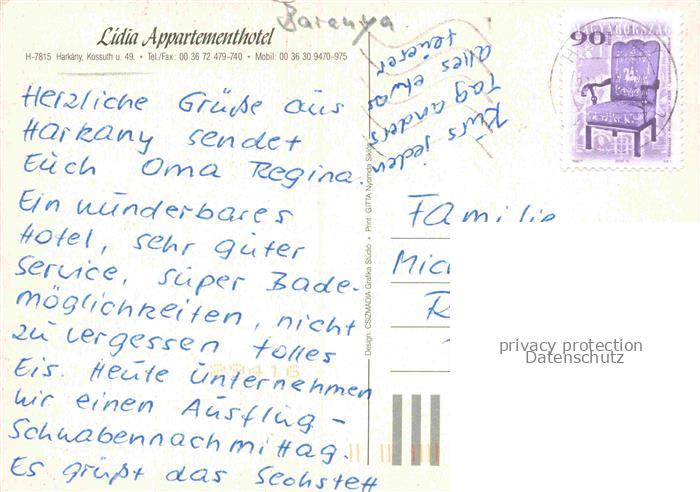 Baranya
Lídia Appartementhotel
H-7815 Harkány, Kossuth u. 49. • Tel./Fax: 00 36 72 479-740 • Mobil: 00 36 30 9470-975
90
MAGYARORSZÁG
Kurs jeden
Tag anders
alles etwas
teuerer
Herzliche Grüße aus
Harkany sendet
Euch Oma Regina.
Ein wunderbares
Hotel, sehr guter
Service, super Bade-
möglichkeiten, nicht
zu vergessen tolles
Eis. Heute unternehmen
wir einen Ausflug –
Schwabennachmittag.
Es grüßt das Sechstett
Design: CSIZMADIA Grafika Stúdió • Print: GITTA Nyomda Siklós
Familie
privacy protection
Datenschutz